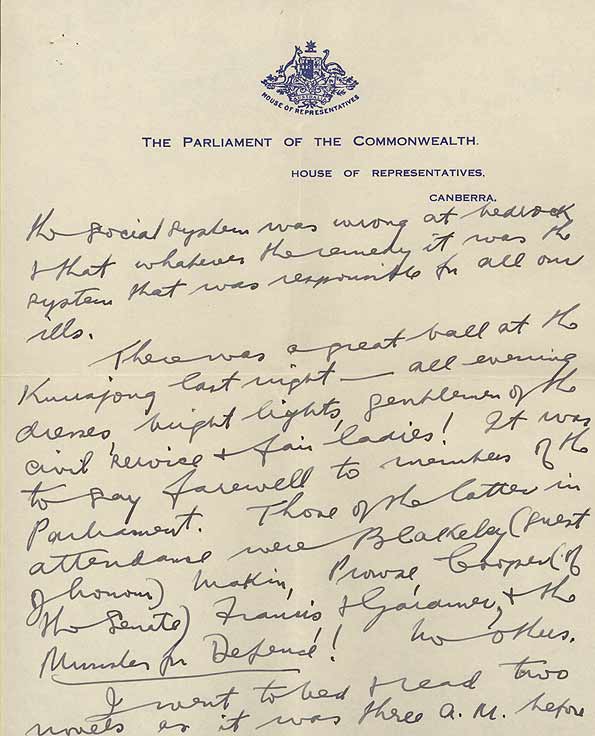 HOUSE OF REPRESENTATIVES
THE PARLIAMENT OF THE COMMONWEALTH.
HOUSE OF REPRESENTATIVES,
CANBERRA.
the social system was wrong at bedrock
& that whatever the remedy it was the
system that was responsible for all our
ills.
There was a great ball at the
Kurrajong last night — all evening
dresses, bright lights, gentlemen of the
civil service & fair ladies! It was
to say farewell to members of the
Parliament. Those of the latter in
attendance were Blakeley (guest
of honour) Makin, Prowse Cooper (of
the Senate) Francis, & Gardner, & the
Minister for Defence! No others.
I went to bed & read two
novels as it was three A.M. before